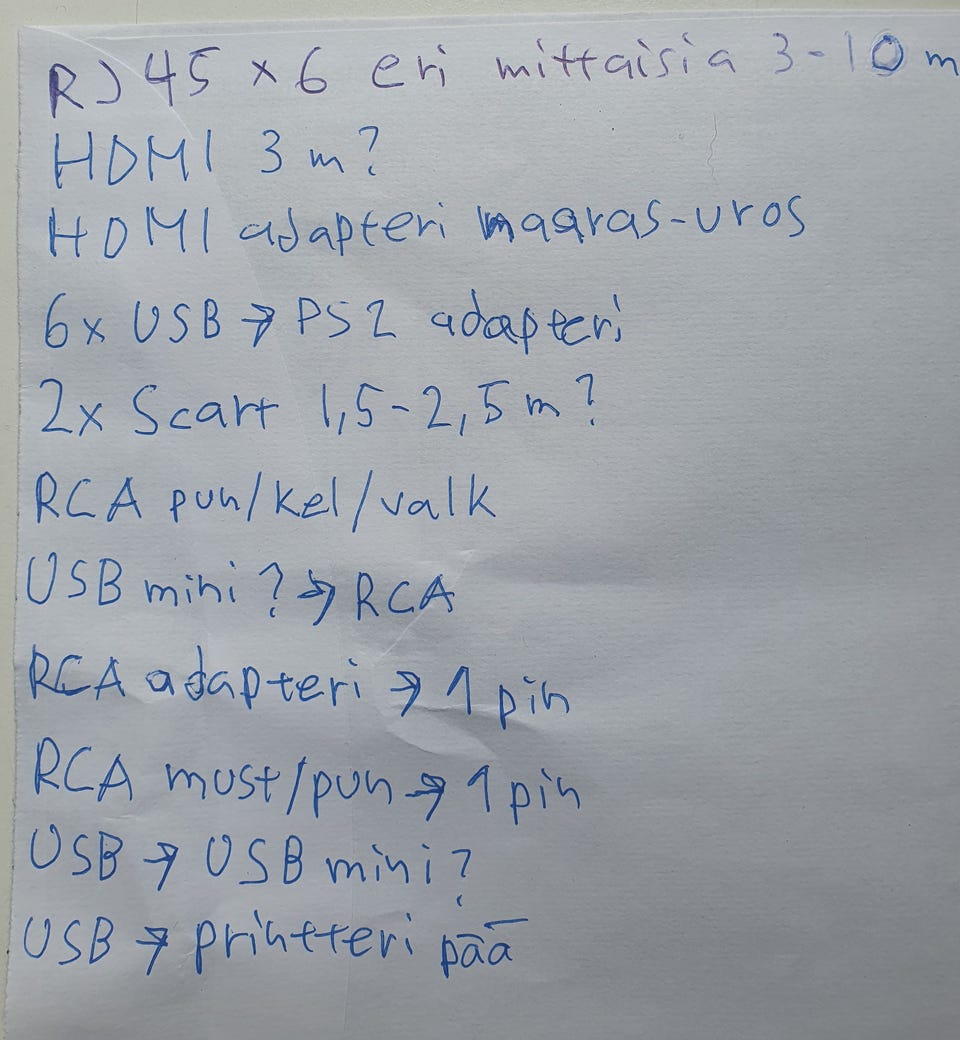 RJ45 x 6 eri mittaisia 3-10 m
HDMI 3 m?
HDMI adapteri naaras-uros
6x USB → PS2 adapteri
2x Scart 1,5-2,5 m?
RCA pun/kel/valk
USB mini? → RCA
RCA adapteri → 1 pin
RCA must/pun → 1 pin
USB → USB mini?
USB → printteri pää